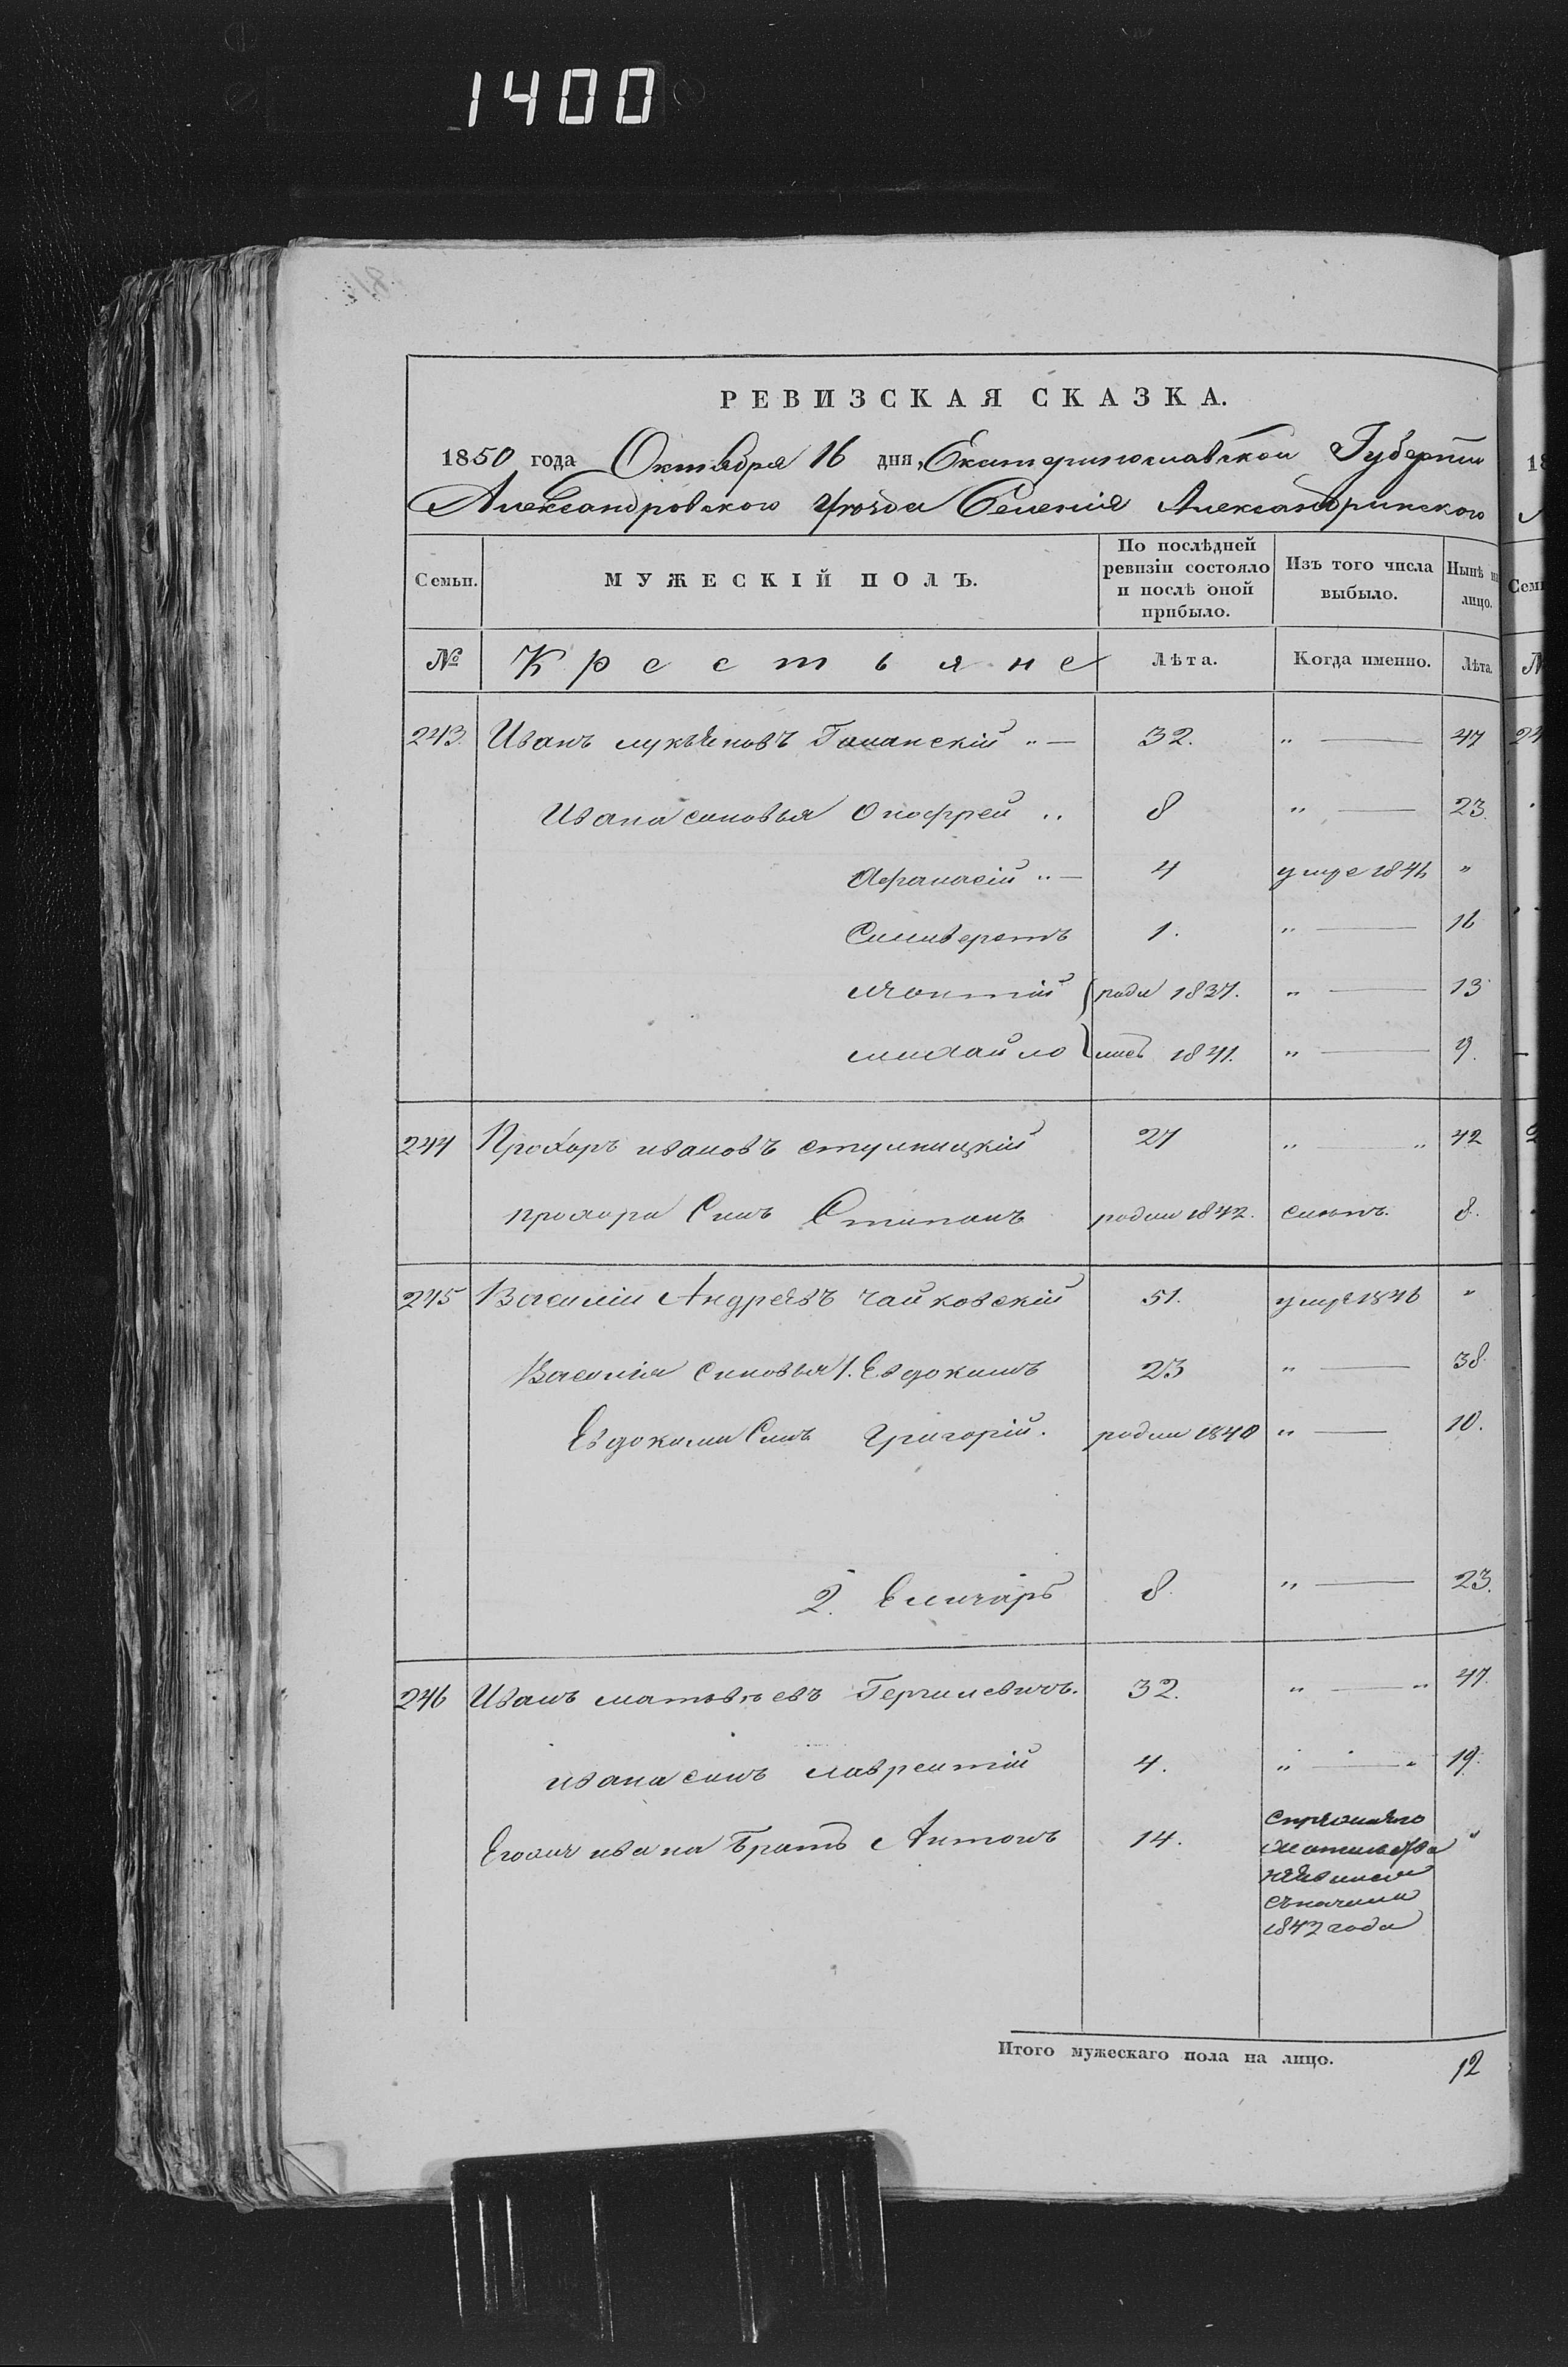 1400
РЕВИЗСКАЯ СКАЗКА.
1850 года Октября 16 дня, Екатеринославской Губернии
Александровского Уезда Селения Александринского
Семьи. МУЖЕСКІЙ ПОЛЪ. По послѣдней ревизіи состояло и послѣ оной прибыло. Изъ того числа выбыло. Нынѣ на лицо.
№ Крестьяне Лѣта. Когда именно. Лѣта.
243. Иванъ лукьяновъ 32. „ — 47
Ивана сыновья Онофрей „ 8 „ — 23.
Афанасій „ — 4 умре 1846 „
Селиверстъ 1. „ — 16
Моктій роди 1837. „ — 13
михайло лись 1841. „ — 9.
244 Прохоръ ивановъ 27 „ — „ 42
прохора Сынъ Степанъ родил 1842. 8.
245 Василій Андреевъ чайковскій 51. умре 1846 „
Василія сыновья 1. Евдокимъ 23 „ — 38.
Евдокима Сынъ Григорій. родил 1840 „ — 10.
2. 8. „ — 23.
246 Иванъ матвѣевъ 32. „ — „ 47.
ивана сынъ лаврентій 4. „ — „ 19.
ивана Братъ Антонъ 14. „
1847 года
Итого мужескаго пола на лицо. 12